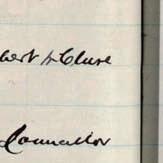 bert McClure
Councillor